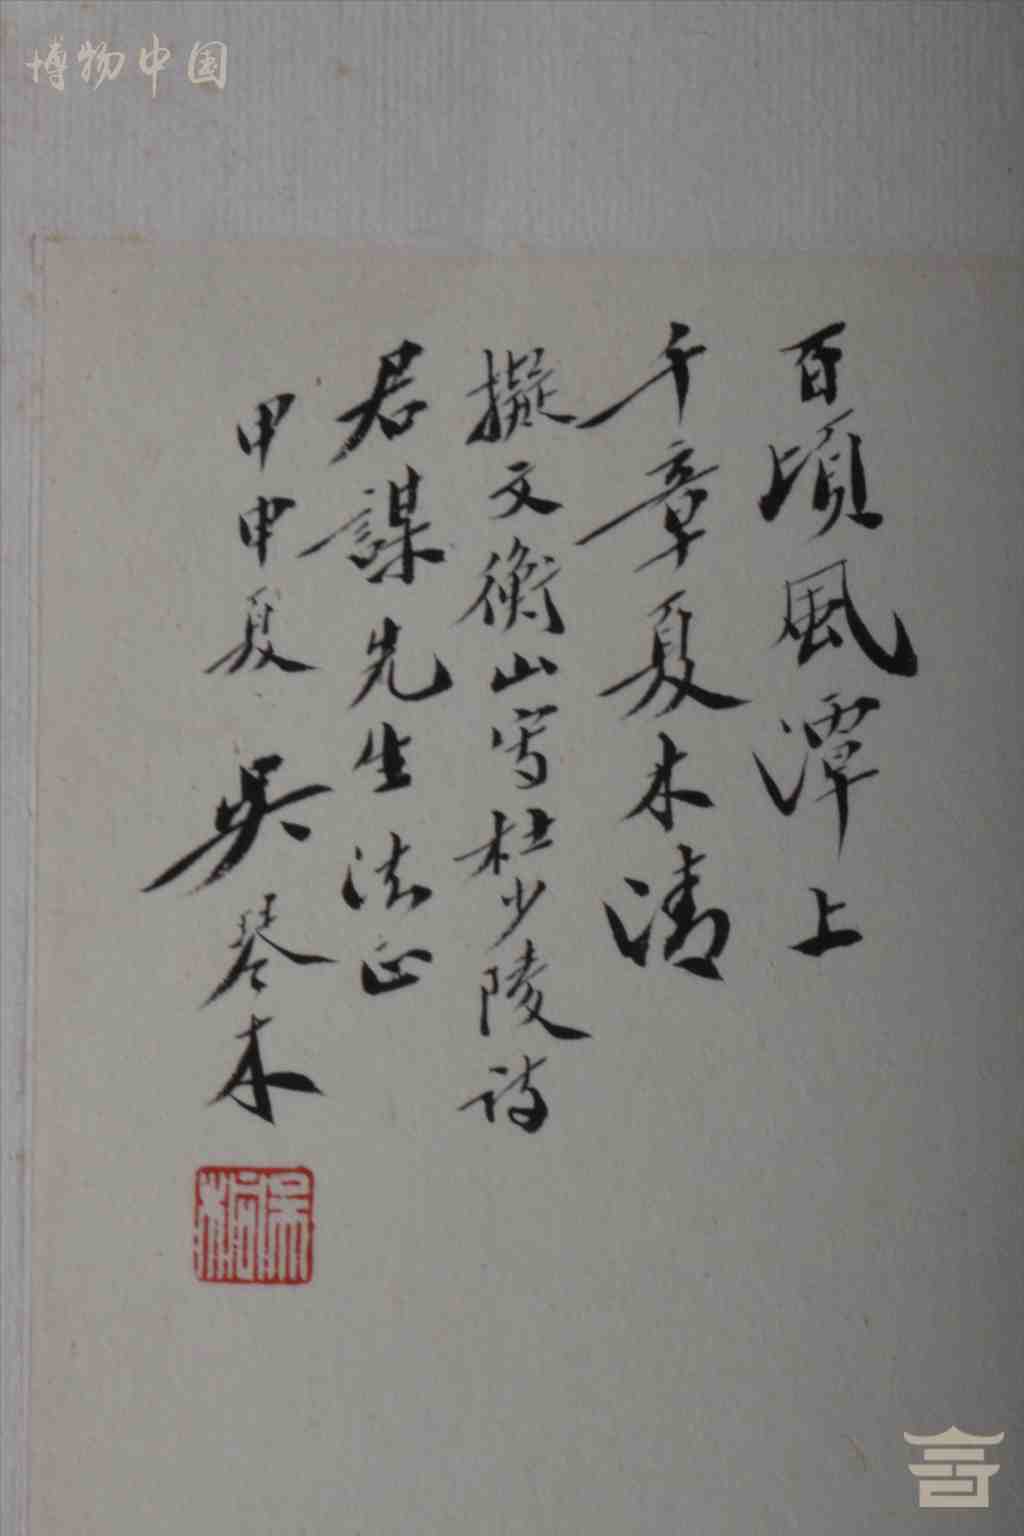 博物中国
百頃風潭上
千章夏木清
擬文衡山寫杜少陵詩
君謀先生法正
甲申夏 吴琴木
吴桐